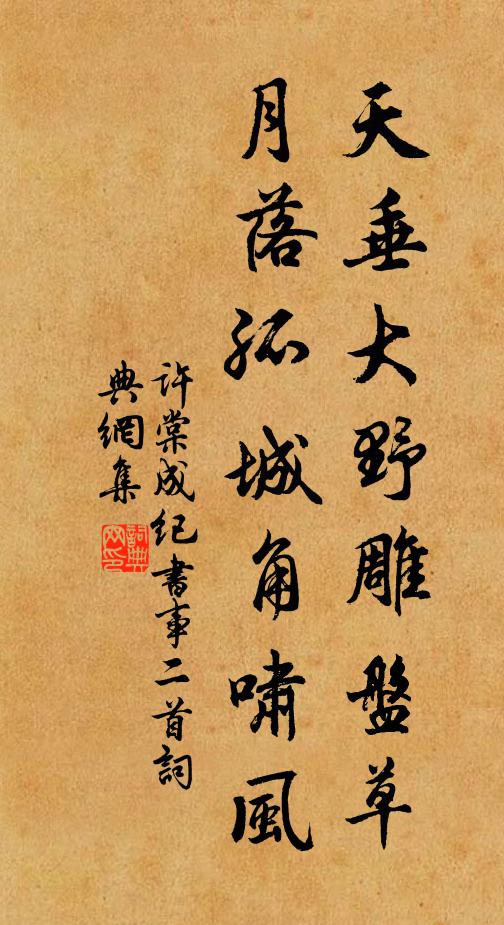 天垂大野雕盤草
月落孤城角嘯風
許棠成紀書事二首詞
典網集
詞典網印